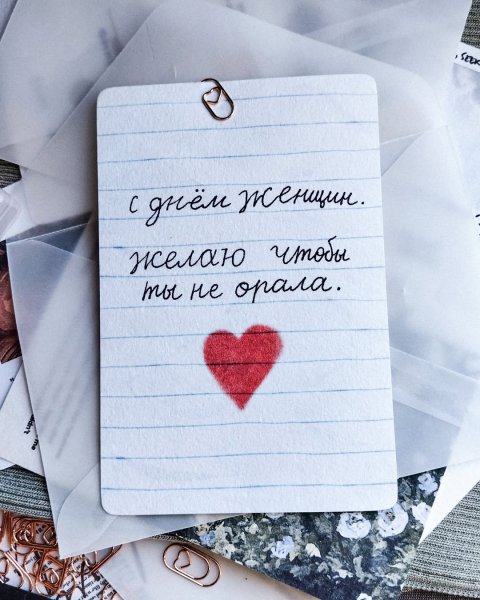 с днём женщин.
желаю чтобы
ты не орала.